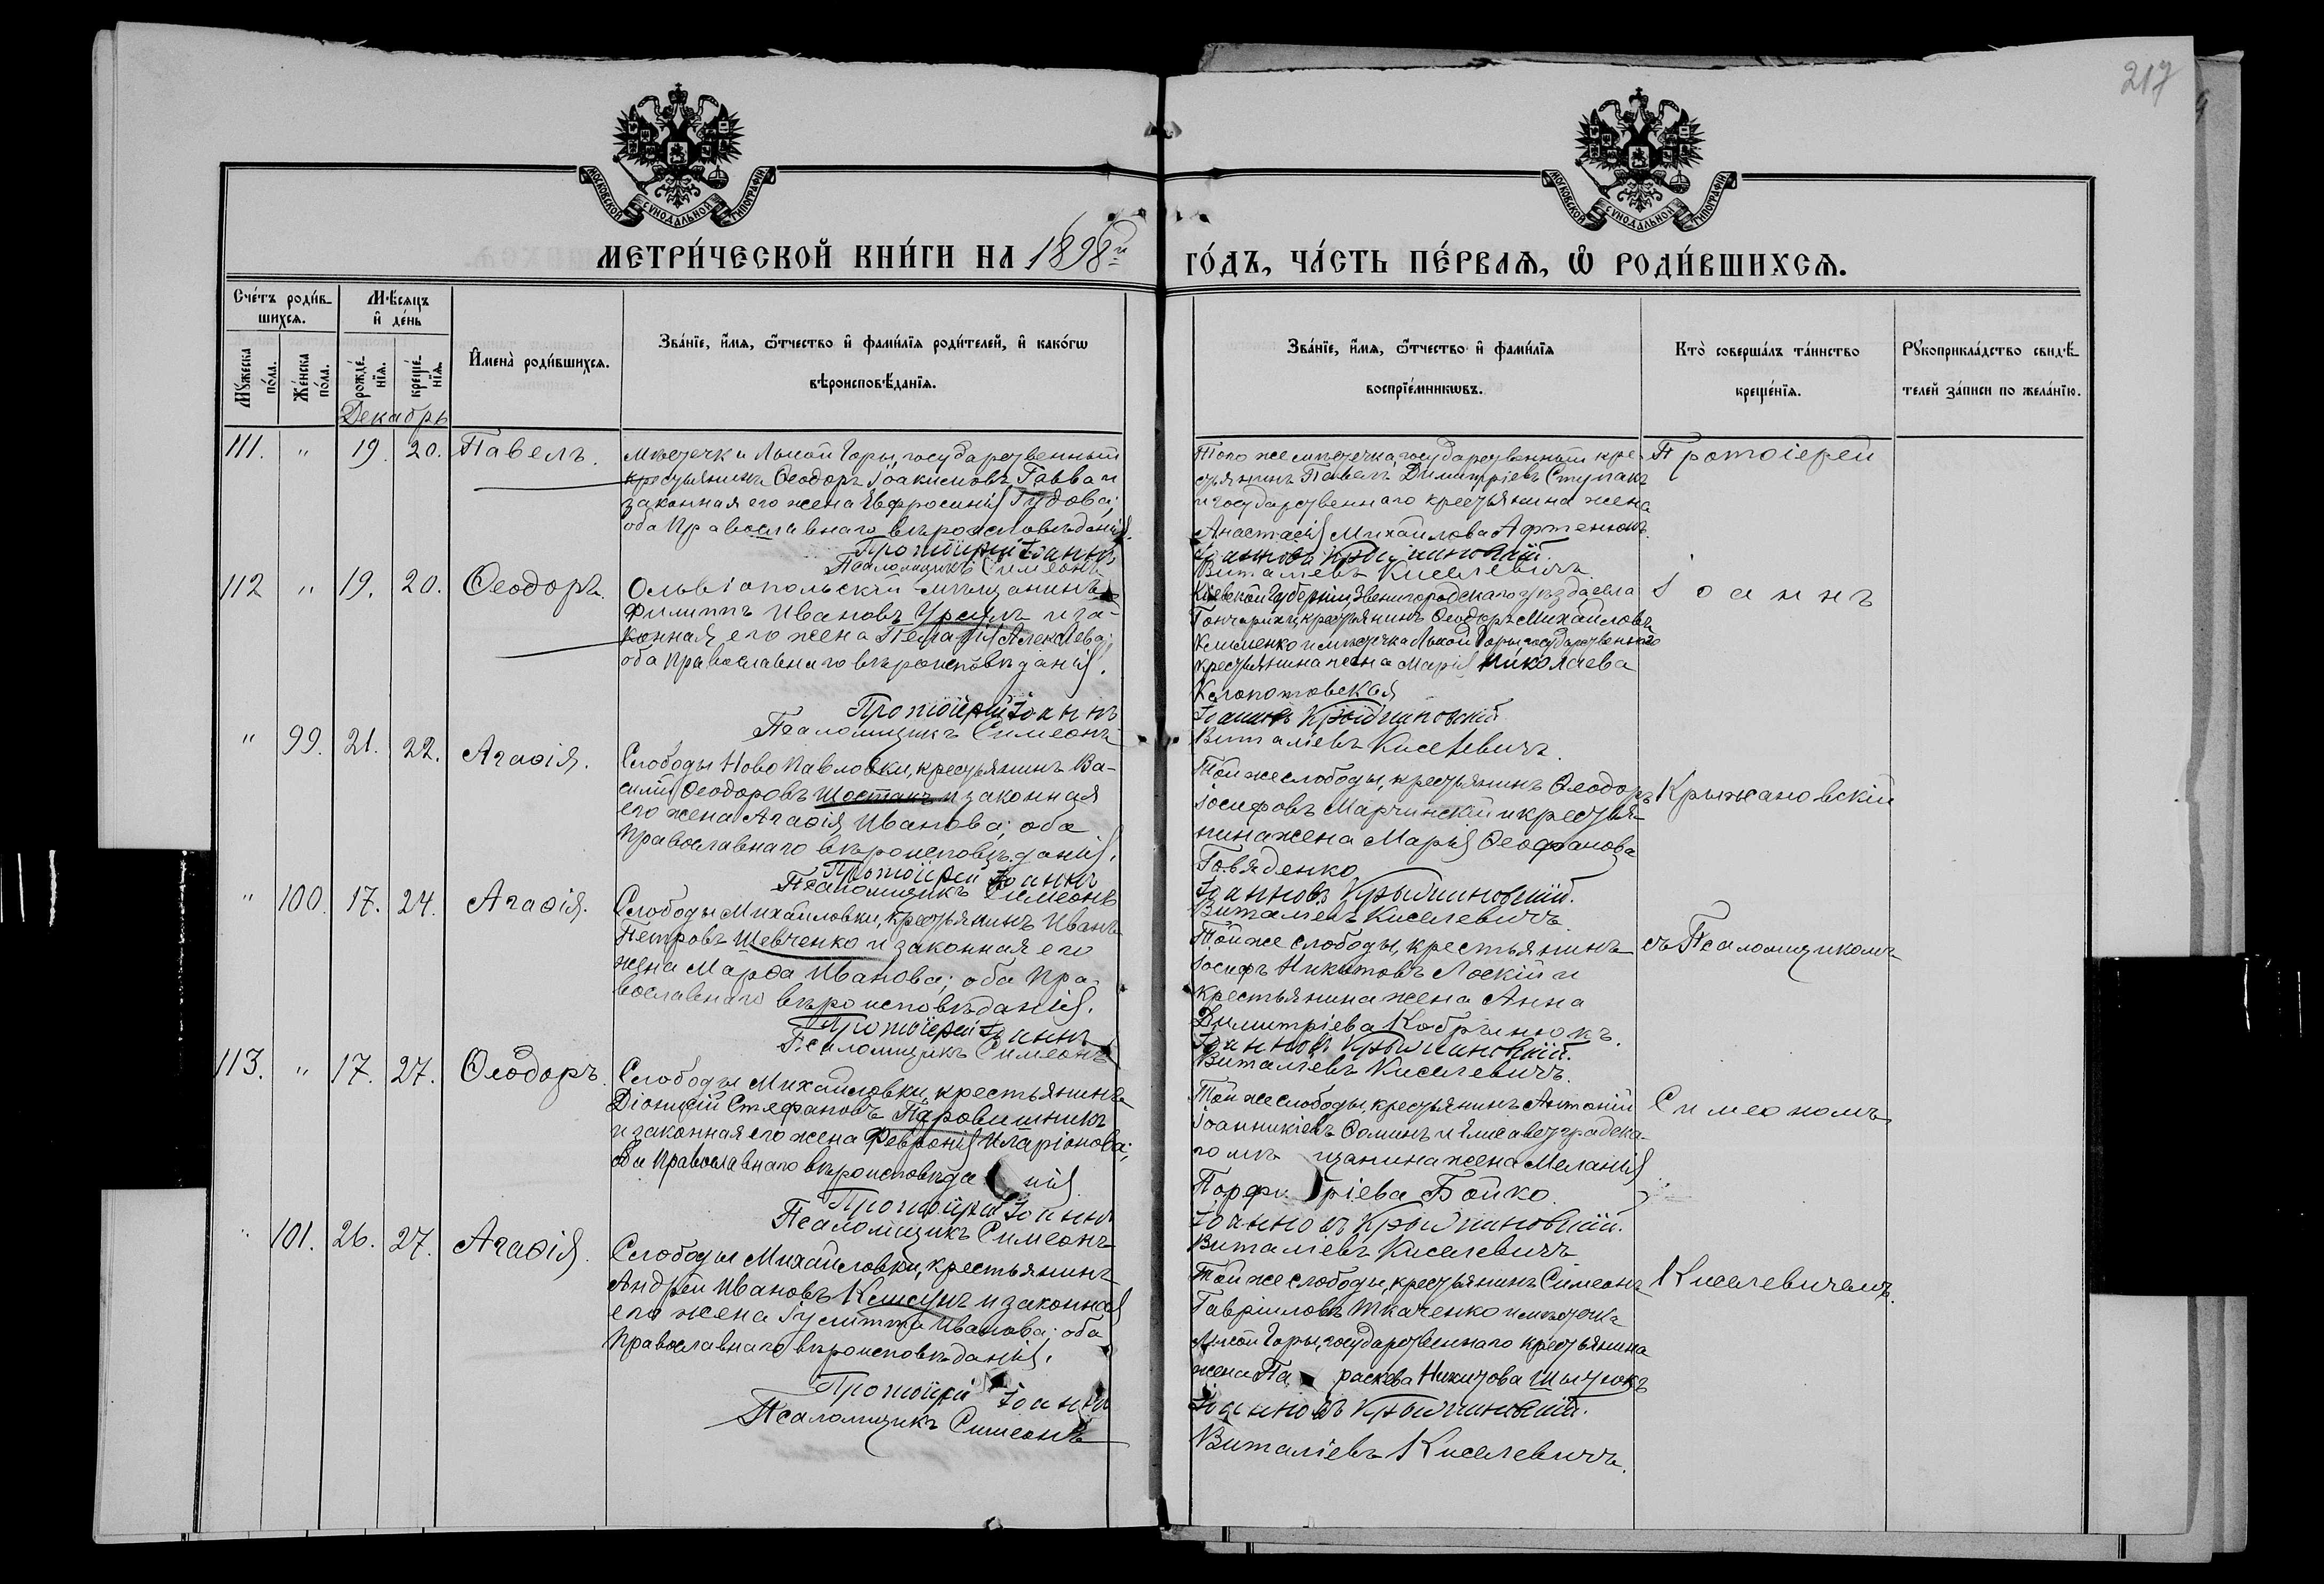 217
МОСКОВСКОЙ СѴНОДАЛЬНОЙ ТИПОГРАФІИ
МОСКОВСКОЙ СѴНОДАЛЬНОЙ ТИПОГРАФІИ
МЕТРИ́ЧЕСКОЙ КНИ́ГИ НА 1898й ГО́ДЪ, ЧА́СТЬ ПЕ́РВАѦ, Ѡ҆ РОДИ́ВШИХСѦ.
Сче́тъ роди́в-
шихсѧ.
Мꙋ́жеска
по́ла.
Же́нска
по́ла.
Мѣ́сѧцъ
и҆ де́нь
рожде́-
нїѧ.
креще́-
нїѧ.
Декабрь
И҆мена̀ роди́вшихсѧ.
Зва́нїе, и҆́мѧ, ѻ҆́тчество и҆ фами́лїѧ роди́телей, и҆ како́гѡ
вѣроисповѣ́данїѧ.
Зва́нїе, и҆́мѧ, ѻ҆́тчество и҆ фами́лїѧ
воспрїе́мникѡвъ.
Кто̀ соверша́лъ та́инство
креще́нїѧ.
Рꙋкоприкла́дство свидѣ́-
телей за́писи по жела́нїю.
111. " 19. 20. Павелъ.
Мѣстечка Лысой Горы, государственный
крестьянинъ Ѳеодоръ Іоакимовъ Гавва и
законная его жена Евфросинія Гудова;
оба Православнаго вѣроисповѣданія.
Протоіерей Іоаннъ
Псаломщикъ Симеонъ
Того же мѣстечка, государственный кре-
стьянинъ Павелъ Димитріевъ Ступакъ
и государственнаго крестьянина жена
Анастасія Михайлова Афтенюкъ.
Іоанновъ Крыжановскій.
Виталіевъ Киселевичъ
Протоіерей
112 " 19. 20. Ѳеодоръ.
Ольвіопольскій мѣщанинъ
Филиппъ Ивановъ Урсулъ и за-
конная его жена Пелагія Алексѣева;
оба Православнаго вѣроисповѣданія.
Протоіерей Іоаннъ
Псаломщикъ Симеонъ
Кіевской Губерніи, Звенигородскаго уѣзда села
Гончарихи, крестьянинъ Ѳеодоръ Михайловъ
Клименко и мѣстечка Лысой Горы, государственнаго
крестьянина жена Марія Николаева
Клопотовская
Іоанновъ Крыжановскій
Виталіевъ Киселевичъ.
Іоаннъ
" 99. 21. 22. Агаѳія.
Слободы Ново Павловки, крестьянинъ Ва-
силій Ѳеодоровъ Шостакъ и законная
его жена Агаѳія Иванова; оба
Православнаго вѣроисповѣданія.
Протоіерей Іоаннъ
Псаломщикъ Симеонъ
Той же слободы, крестьянинъ Ѳеодоръ
Іосифовъ Марчинскій и крестья-
нина жена Марія Ѳеофанова
Говяденко
Іоанновъ Крыжановскій.
Виталіевъ Киселевичъ.
Крыжановскій
" 100. 17. 24. Агаѳія.
Слободы Михайловки, крестьянинъ Иванъ
Петровъ Шевченко и законная его
жена Марѳа Иванова; оба Пра-
вославнаго вѣроисповѣданія.
Протоіерей Іоаннъ
Псаломщикъ Симеонъ
Той же слободы, крестьянинъ
Іосифъ Никитовъ Лоскій и
крестьянина жена Анна
Димитріева Кобринюкъ.
Іоанновъ Крыжановскій.
Виталіевъ Киселевичъ.
съ Псаломщикомъ
113. " 17. 27. Ѳеодоръ.
Слободы Михайловки, крестьянинъ
Діонисій Стефановъ Паровишникъ
и законная его жена Февронія Иларіонова;
оба Православнаго вѣроисповѣданія
Протоіерей Іоаннъ
Псаломщикъ Симеонъ
Той же слободы, крестьянинъ Антоній
Іоанникіевъ Ѳоминъ и Елисаветградска-
го мѣщанина жена Меланія
Порфиріева Бойко.
Іоанновъ Крыжановскій.
Виталіевъ Киселевичъ
Симеономъ
" 101. 26. 27. Агаѳія.
Слободы Михайловки, крестьянинъ
Андрей Ивановъ Кшсунъ и законная
его жена Іулитта Иванова; оба
Православнаго вѣроисповѣданія.
Протоіерей Іоаннъ
Псаломщикъ Симеонъ
Той же слободы, крестьянинъ Симеонъ
Гавріиловъ Ткаченко и мѣстечка
Лысой Горы, государственнаго крестьянина
жена Параскева Никитова Шытюкъ
Іоанновъ Крыжановскій.
Виталіевъ Киселевичъ.
Киселевичемъ.